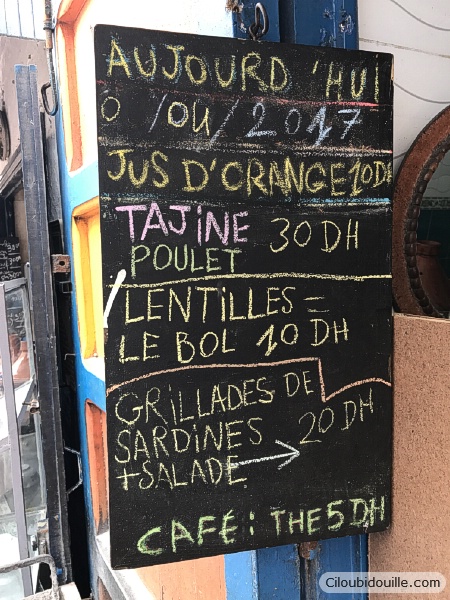 AUJOURD'HUI
/04/2017
JUS D'ORANGE 10DH
TAJINE 30 DH
POULET
LENTILLES =
LE BOL 10 DH
GRILLADES DE
SARDINES 20 DH
+SALADE →
CAFE: THE 5DH
Ciloubidouille.com